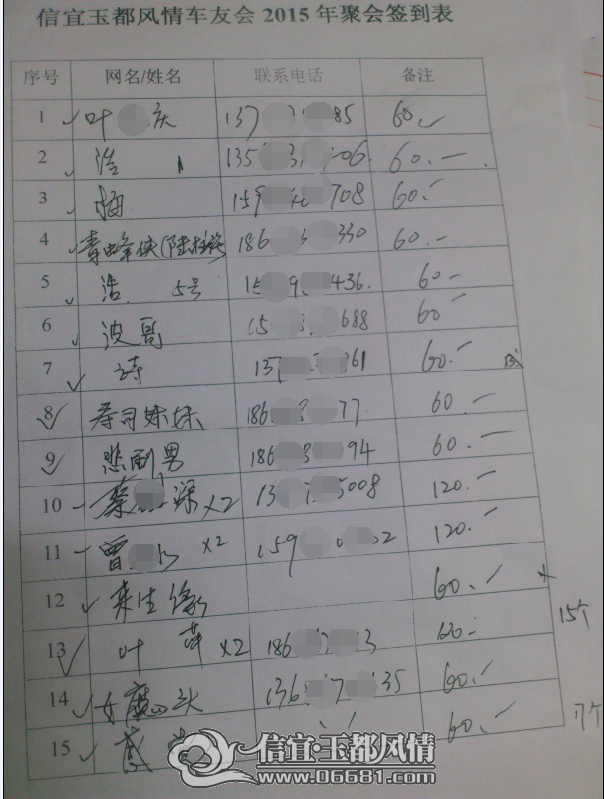 信宜玉都风情车友会 2015 年聚会签到表
序号 网名/姓名 联系电话 备注
1 叶 庆 137 85 60.-
2 浩 135 3 06. 60.-
3 梅 159 708 60.-
4 青峰侠(陆 186 3 330 60.-
5 浩. 5号 15 9 436. 60.-
6 波哥 15 688 60.-
7 诗 13 61 60.-
8 寿司妹妹 186 77 60.-
9 悲剧男 186 3 94 60.-
10 蔡 深 x2 13 5008 120.-
11 曾 x2 159 2 120.-
12 来生缘 60.-
13 叶 萍 x2 186 3 120.-
15个
14 女魔头 136 7 135 60.-
15 60.-
17个
信宜·玉都风情
www.06681.com